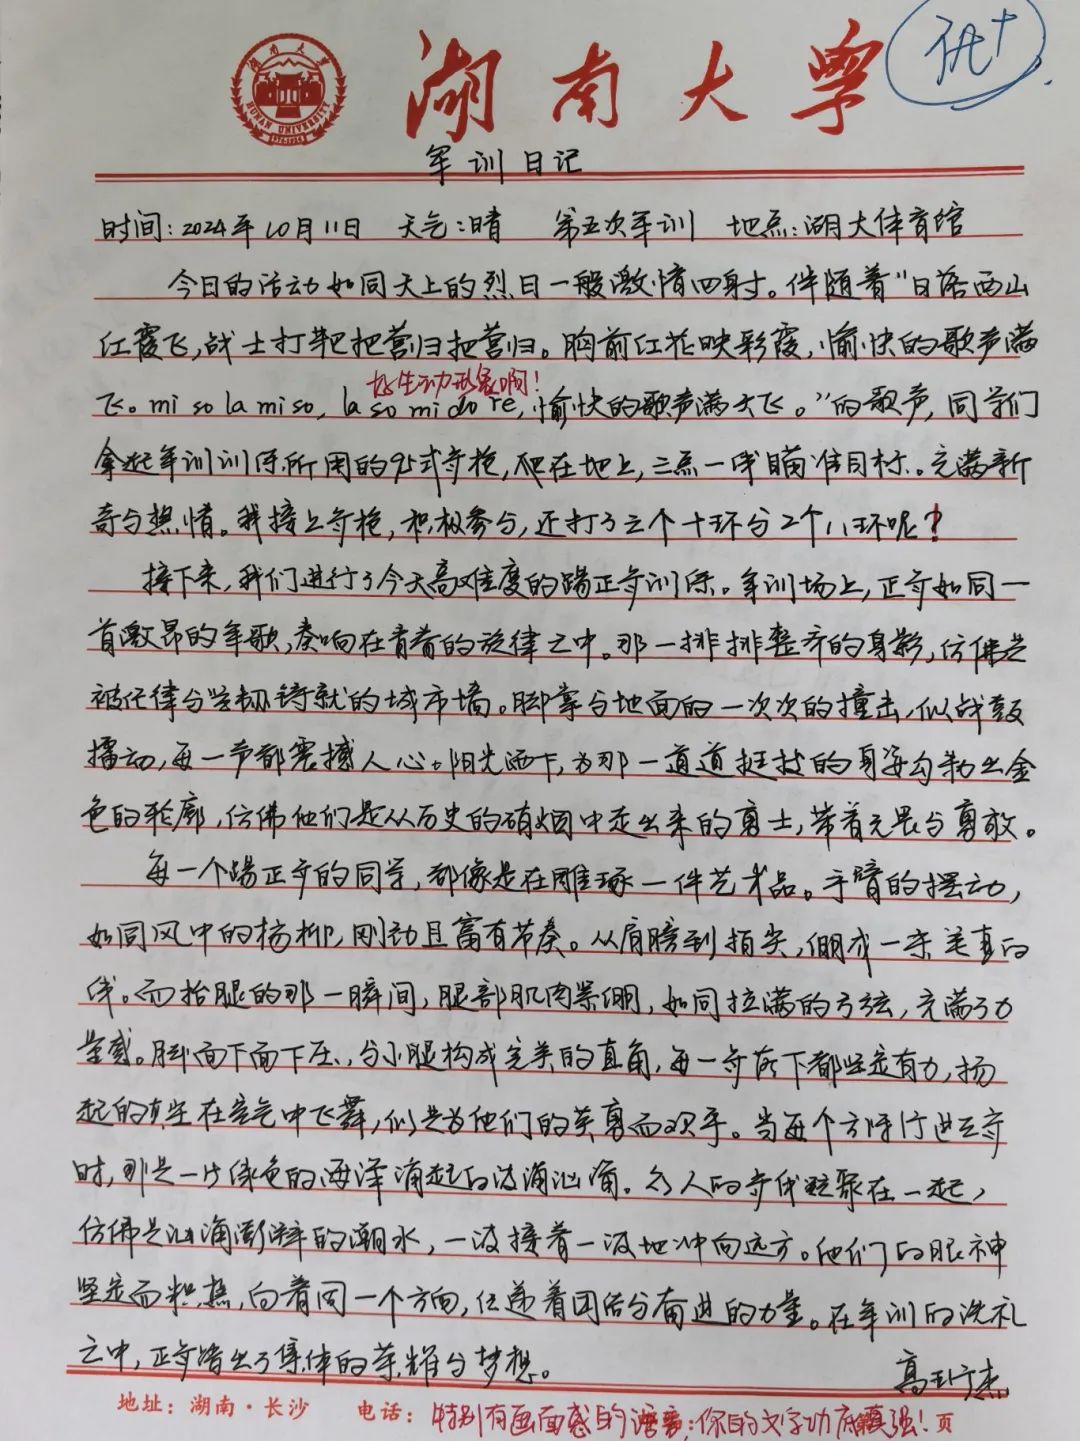 优+
湖南大学
HUNAN UNIVERSITY
军训日记
时间:2024年10月11日 天气:晴 第五次军训 地点:湖大体育馆
今日的活动如同天上的烈日一般激情四射。伴随着“日落西山
红霞飞,战士打靶把营归把营归。胸前红花映彩霞,愉快的歌声满
好生动形象啊!
飞。mi so la mi so, la so mi do re,愉快的歌声满天飞。”的歌声,同学们
拿起军训训练所用的95式步枪,爬在地上,三点一线瞄准目标。充满新
奇与热情。我接上步枪,积极参与,还打了三个十环分2个八环呢?
接下来,我们进行了今天高难度的踢正步训练。军训场上,正步如同一
首激昂的军歌,奏响在青春的旋律之中。那一排排整齐的身影,仿佛是
被纪律与坚韧铸就的城市墙。脚掌与地面的一次次的撞击,似战鼓
擂动,每一声都震撼人心。阳光洒下,为那一道道挺拔的身姿勾勒出金
色的轮廓,仿佛他们是从历史的硝烟中走出来的勇士,带着无畏与勇敢。
每一个踢正步的同学,都像是在雕琢一件艺术品。手臂的摆动,
如同风中的杨柳,刚劲且富有节奏。从肩膀到指尖,绷成一条笔直的
线。而抬腿的那一瞬间,腿部肌肉紧绷,如同拉满的弓弦,充满了力
量感。脚面下面下压,与小腿构成完美的直角,每一步落下都坚定有力,扬
起的灰尘在空气中飞舞,似是为他们的英勇而欢呼。当每个方阵行进正步
时,那是一片绿色的海洋涌起的波涛汹涌。众人的步伐凝聚在一起,
仿佛是汹涌澎湃的潮水,一波接着一波地冲向远方。他们的眼神
坚定而炽热,向着同一个方向,传递着团结与奋进的力量。在军训的洗礼
之中,正步踏出了集体的荣耀与梦想。
地址:湖南·长沙 电话: 特别有画面感的语言;你的文字功底真强! 页